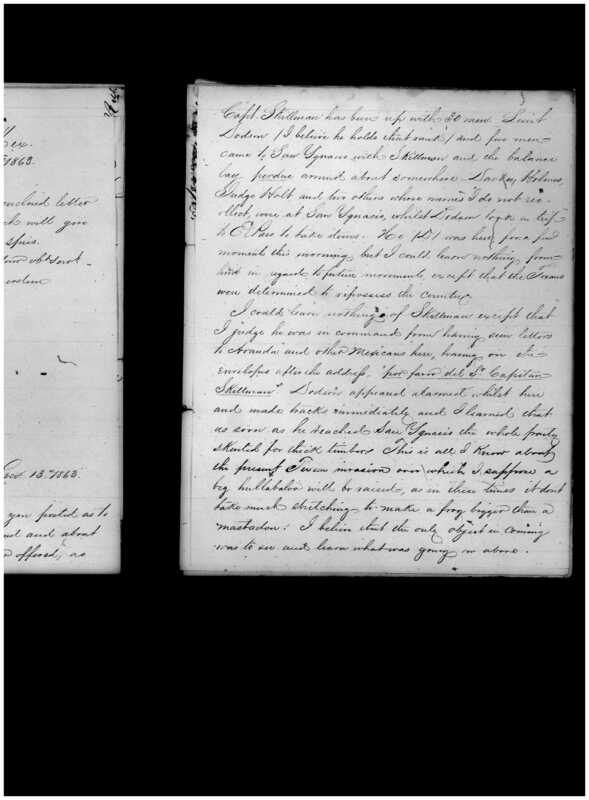 ex.
1863.
enclosed letter
ch will give
spies.
Capt. Skillman has been up with 30 men. Lieut
Dodson (I believe he holds that rank) and five men
came to San Ygnacio with Skillman and the balance
lay perdue around about somewhere. Holmes,
Judge Holt, and two others whose names I do not re-
collect, were at San Ygnacio, whilst Dodson took a trip
to El Paso to take items. He (D) was here for a few
moments this morning, but I could learn nothing from
him in regard to future movements, except that the Texans
were determined to repossess the country.
I could learn nothing of Skillman except that
I judge he was in command from having seen letters
to Aranda and other Mexicans here, having on the
envelopes after the address, "por favor del Sr. Capitan
Skillman". Dodson appeared alarmed whilst here
and made tracks immediately and I learned that
as soon as he reached San Ygnacio the whole party
skeated for thick timber. This is all I know about
the present Texan invasion over which I suppose a
big hullabaloo will be raised, as in these times it dont
take much stretching to make a frog bigger than a
mastadon. I believe that the only object in coming
was to see and learn what was going on above.
Dec 13. 1863.
you posted as to
and about
offered, as